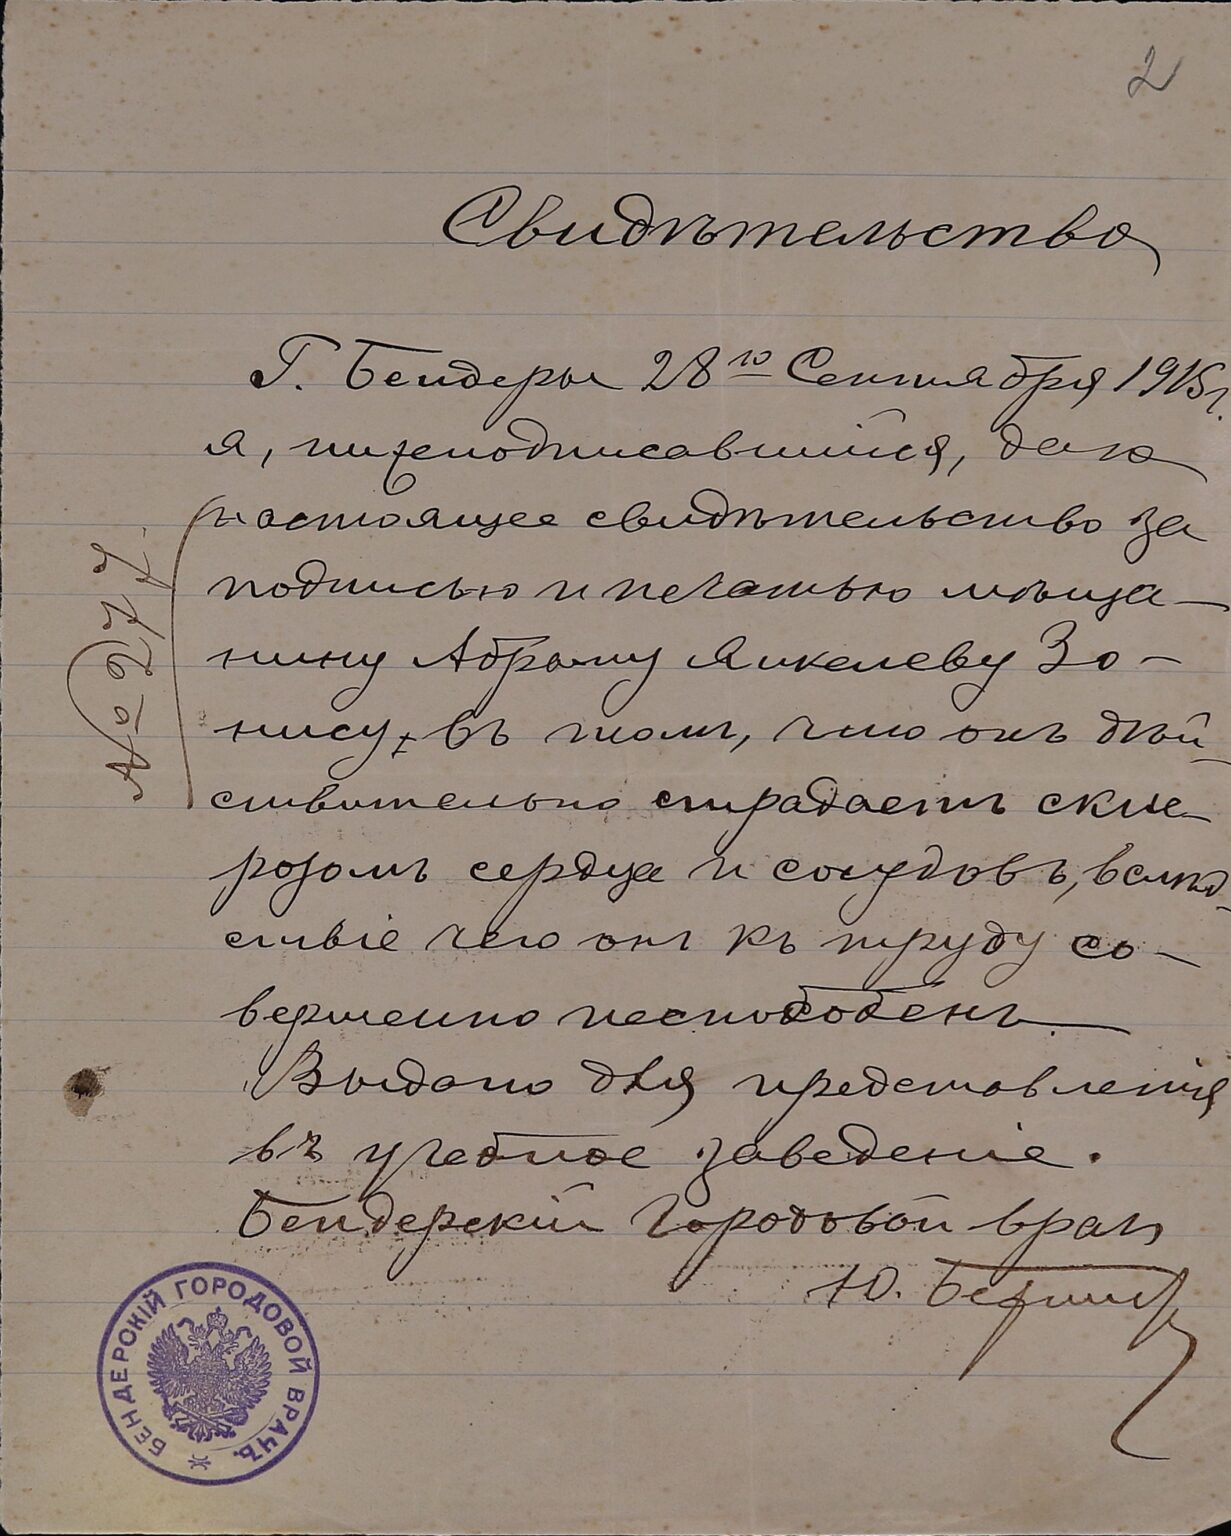 2
Свидѣтельство
Г. Бендеры 28го Сентября 1915г.
я, нижеподписавшійся, даю
настоящее свидѣтельство за
подписью и печатью мѣща-
нину Абраму Янкелеву Зо-
нису, въ томъ, что онъ дѣй-
ствительно страдаетъ скле-
розомъ сердца и сосудовъ, вслѣд-
ствіе чего онъ къ труду со-
вершенно неспособенъ
Выдано для представленія
въ учебное заведеніе.
Бендерскій Городовой врачъ
Ю.
№ 277
БЕНДЕРСКІЙ ГОРОДОВОЙ ВРАЧЪ.